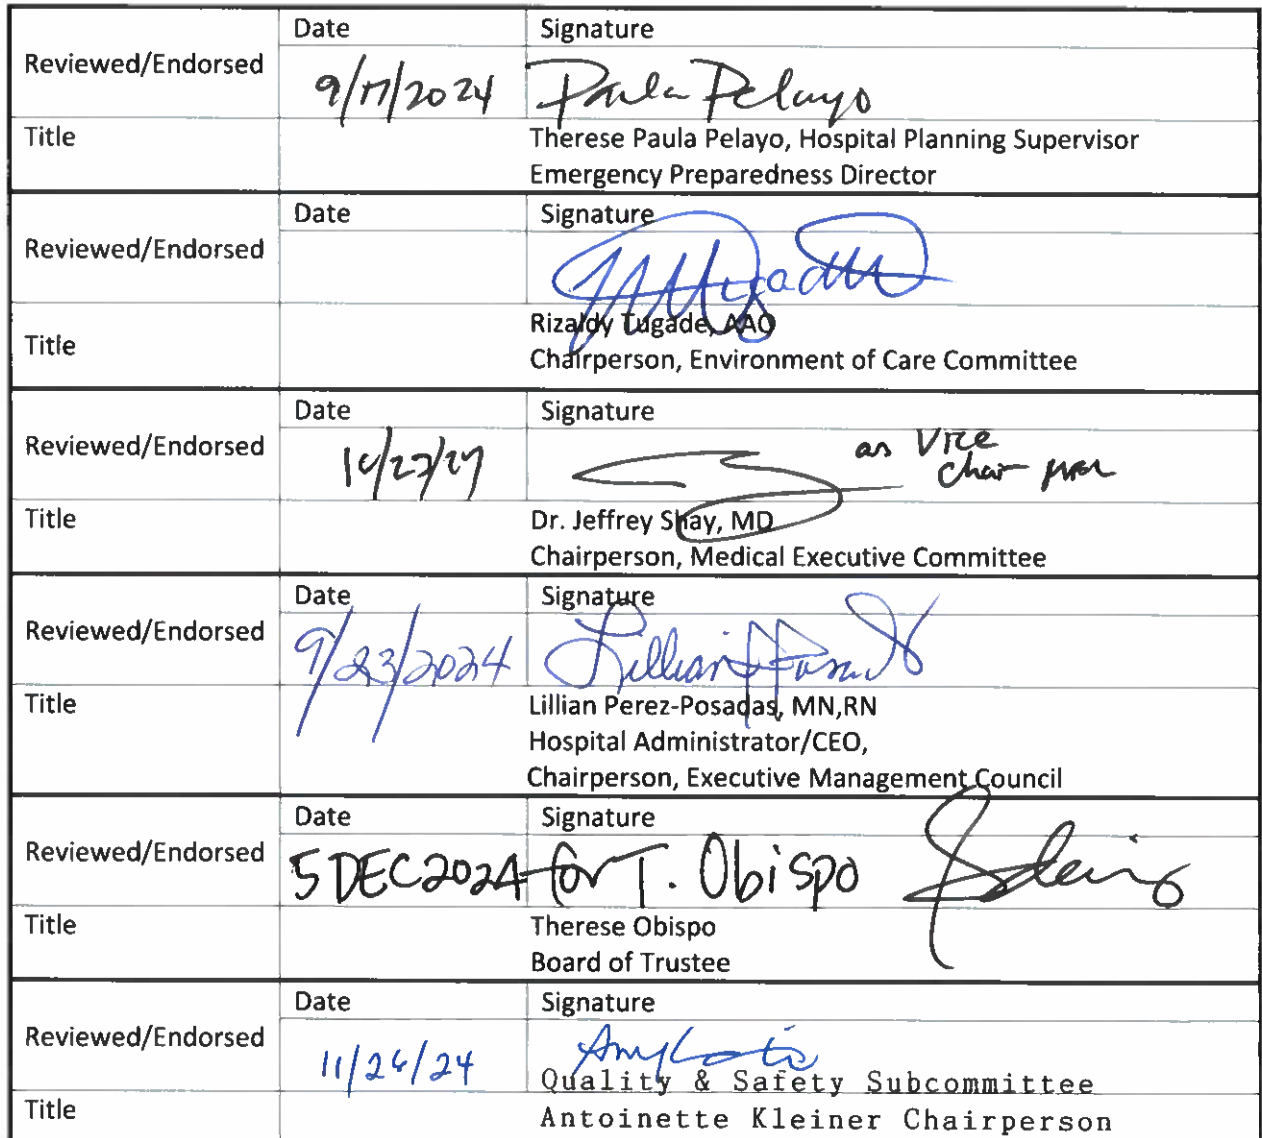 Date Signature
Reviewed/Endorsed 9/17/2024 Paula Pelayo
Title Therese Paula Pelayo, Hospital Planning Supervisor
Emergency Preparedness Director
Date Signature
Reviewed/Endorsed
Title Rizaldy Tugade, AAO
Chairperson, Environment of Care Committee
Date Signature
Reviewed/Endorsed as Vice
Chair
Title Dr. Jeffrey Shay, MD
Chairperson, Medical Executive Committee
Date Signature
Reviewed/Endorsed 9/23/2024 Lillian
Title Lillian Perez-Posadas, MN,RN
Hospital Administrator/CEO,
Chairperson, Executive Management Council
Date Signature
Reviewed/Endorsed 5 DEC 2024 for T. Obispo
Title Therese Obispo
Board of Trustee
Date Signature
Reviewed/Endorsed 11/26/24
Quality & Safety Subcommittee
Title Antoinette Kleiner Chairperson